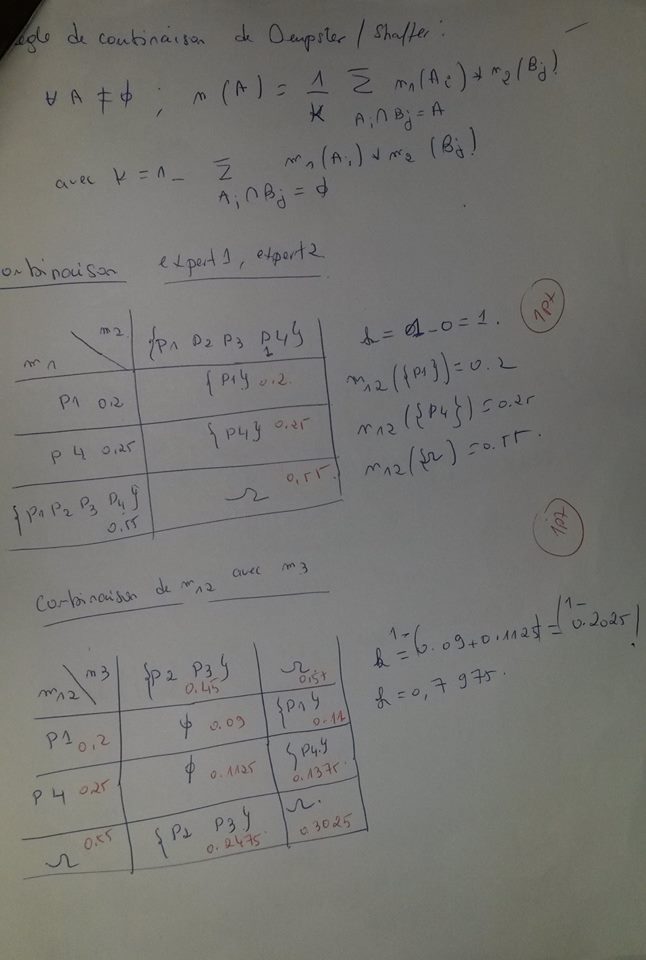 egle de combinaison de Dempster / Shaffer :
∀ A ≠ ϕ ; m (A) = 1/K Σ m1(Ai) * m2(Bj)
Ai ∩ Bj = A
avec K = 1 - Σ m1(Ai) * m2 (Bj)
Ai ∩ Bj = ϕ
ombinaison expert1, expert2
m1 \ m2 {P1 P2 P3 P4} 1
P1 0,2 {P1} 0.2
P4 0,25 {P4} 0.25
{P1 P2 P3 P4} 0.55 Ω 0,55
k = 1-0 = 1.
1pt
m12 ({P1}) = 0.2
m12 ({P4}) = 0.25
m12 ({Ω) = 0.55.
1pt
Combinaison de m12 avec m3
m12 \ m3 {P2 P3} 0.45 Ω 0,55
P1 0,2 ϕ 0.09 {P1} 0.11
P4 0.25 ϕ 0.1125 {P4} 0.1375
Ω 0.55 {P2 P3} 0.2475 Ω 0.3025
k = 1-(0.09+0.1125) = (1-0.2025)
k = 0,7975.